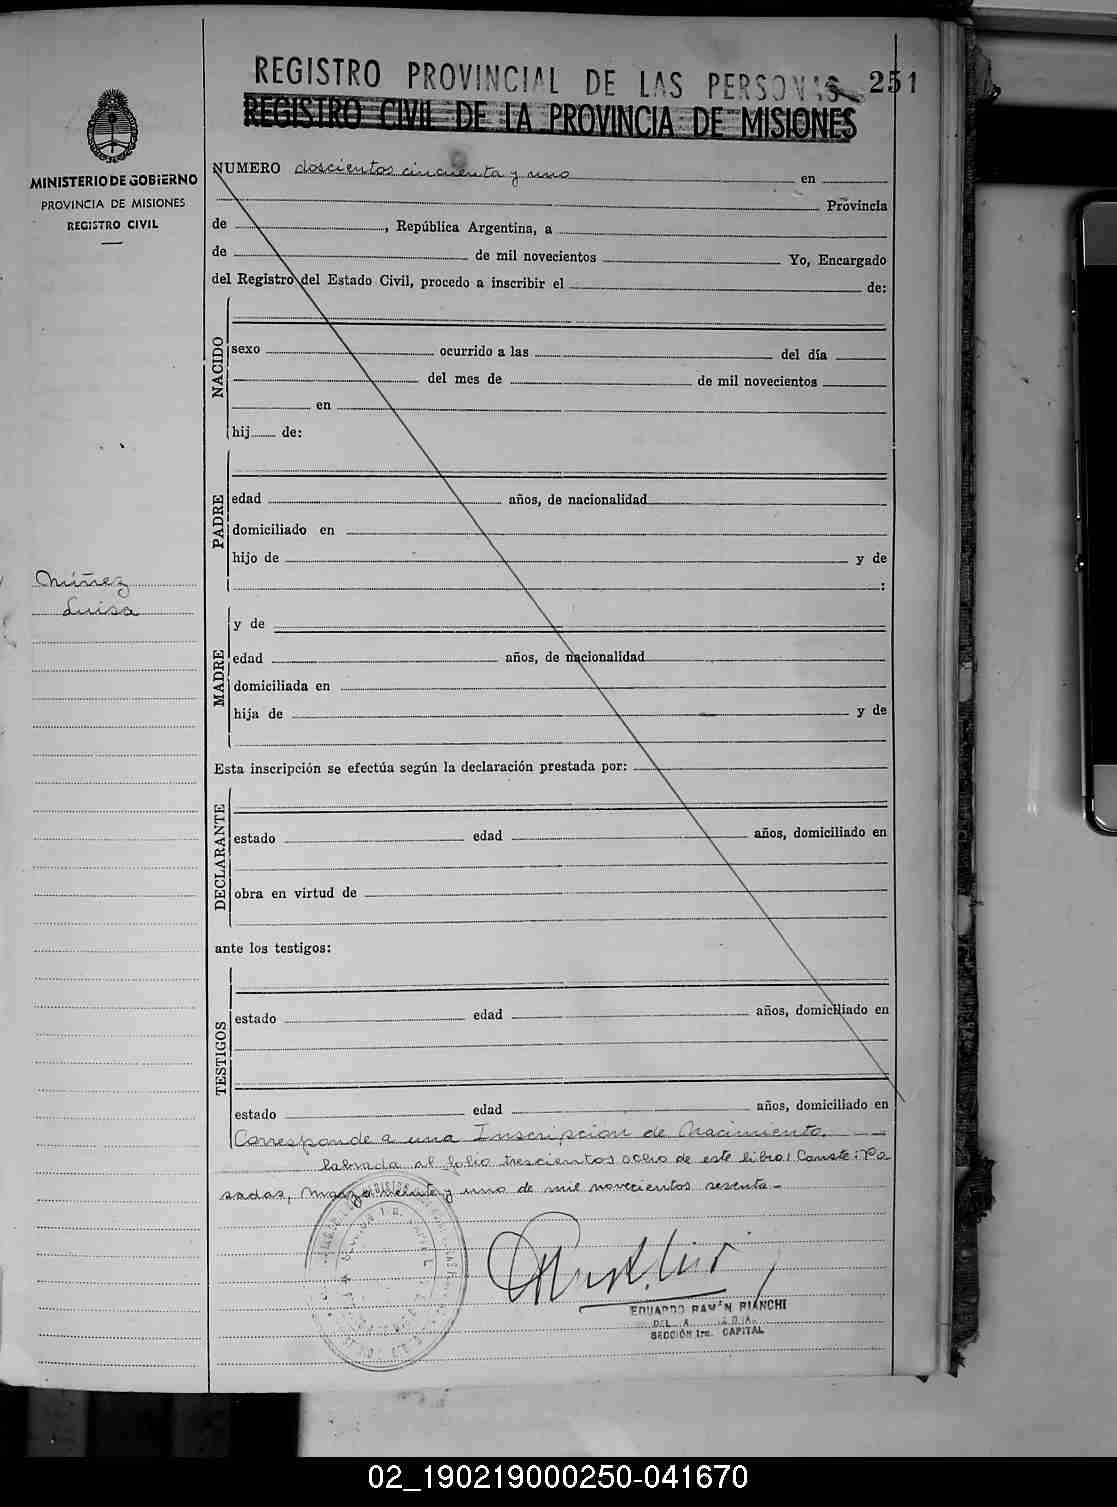 REGISTRO PROVINCIAL DE LAS PERSONAS 251
REGISTRO CIVIL DE LA PROVINCIA DE MISIONES
MINISTERIO DE GOBIERNO
PROVINCIA DE MISIONES
REGISTRO CIVIL
NUMERO doscientos cincuenta y uno en
Provincia
de , República Argentina, a
de de mil novecientos Yo, Encargado
del Registro del Estado Civil, procedo a inscribir el de:
NACIDO
sexo ocurrido a las del día
del mes de de mil novecientos
en
hij de:
PADRE
edad años, de nacionalidad
domiciliado en
hijo de y de
:
Núñez
Luisa
MADRE
y de
edad años, de nacionalidad
domiciliada en
hija de y de
Esta inscripción se efectúa según la declaración prestada por:
DECLARANTE
estado edad años, domiciliado en
obra en virtud de
ante los testigos:
TESTIGOS
estado edad años, domiciliado en
estado edad años, domiciliado en
Corresponde a una Inscripción de Nacimiento,
labrada al folio trescientos ocho de este libro; Conste: Po
sadas, Marzo treinta y uno de mil novecientos sesenta.-
EDUARDO RAMÓN BIANCHI
SECCIÓN 1ra. CAPITAL
02_190219000250-041670